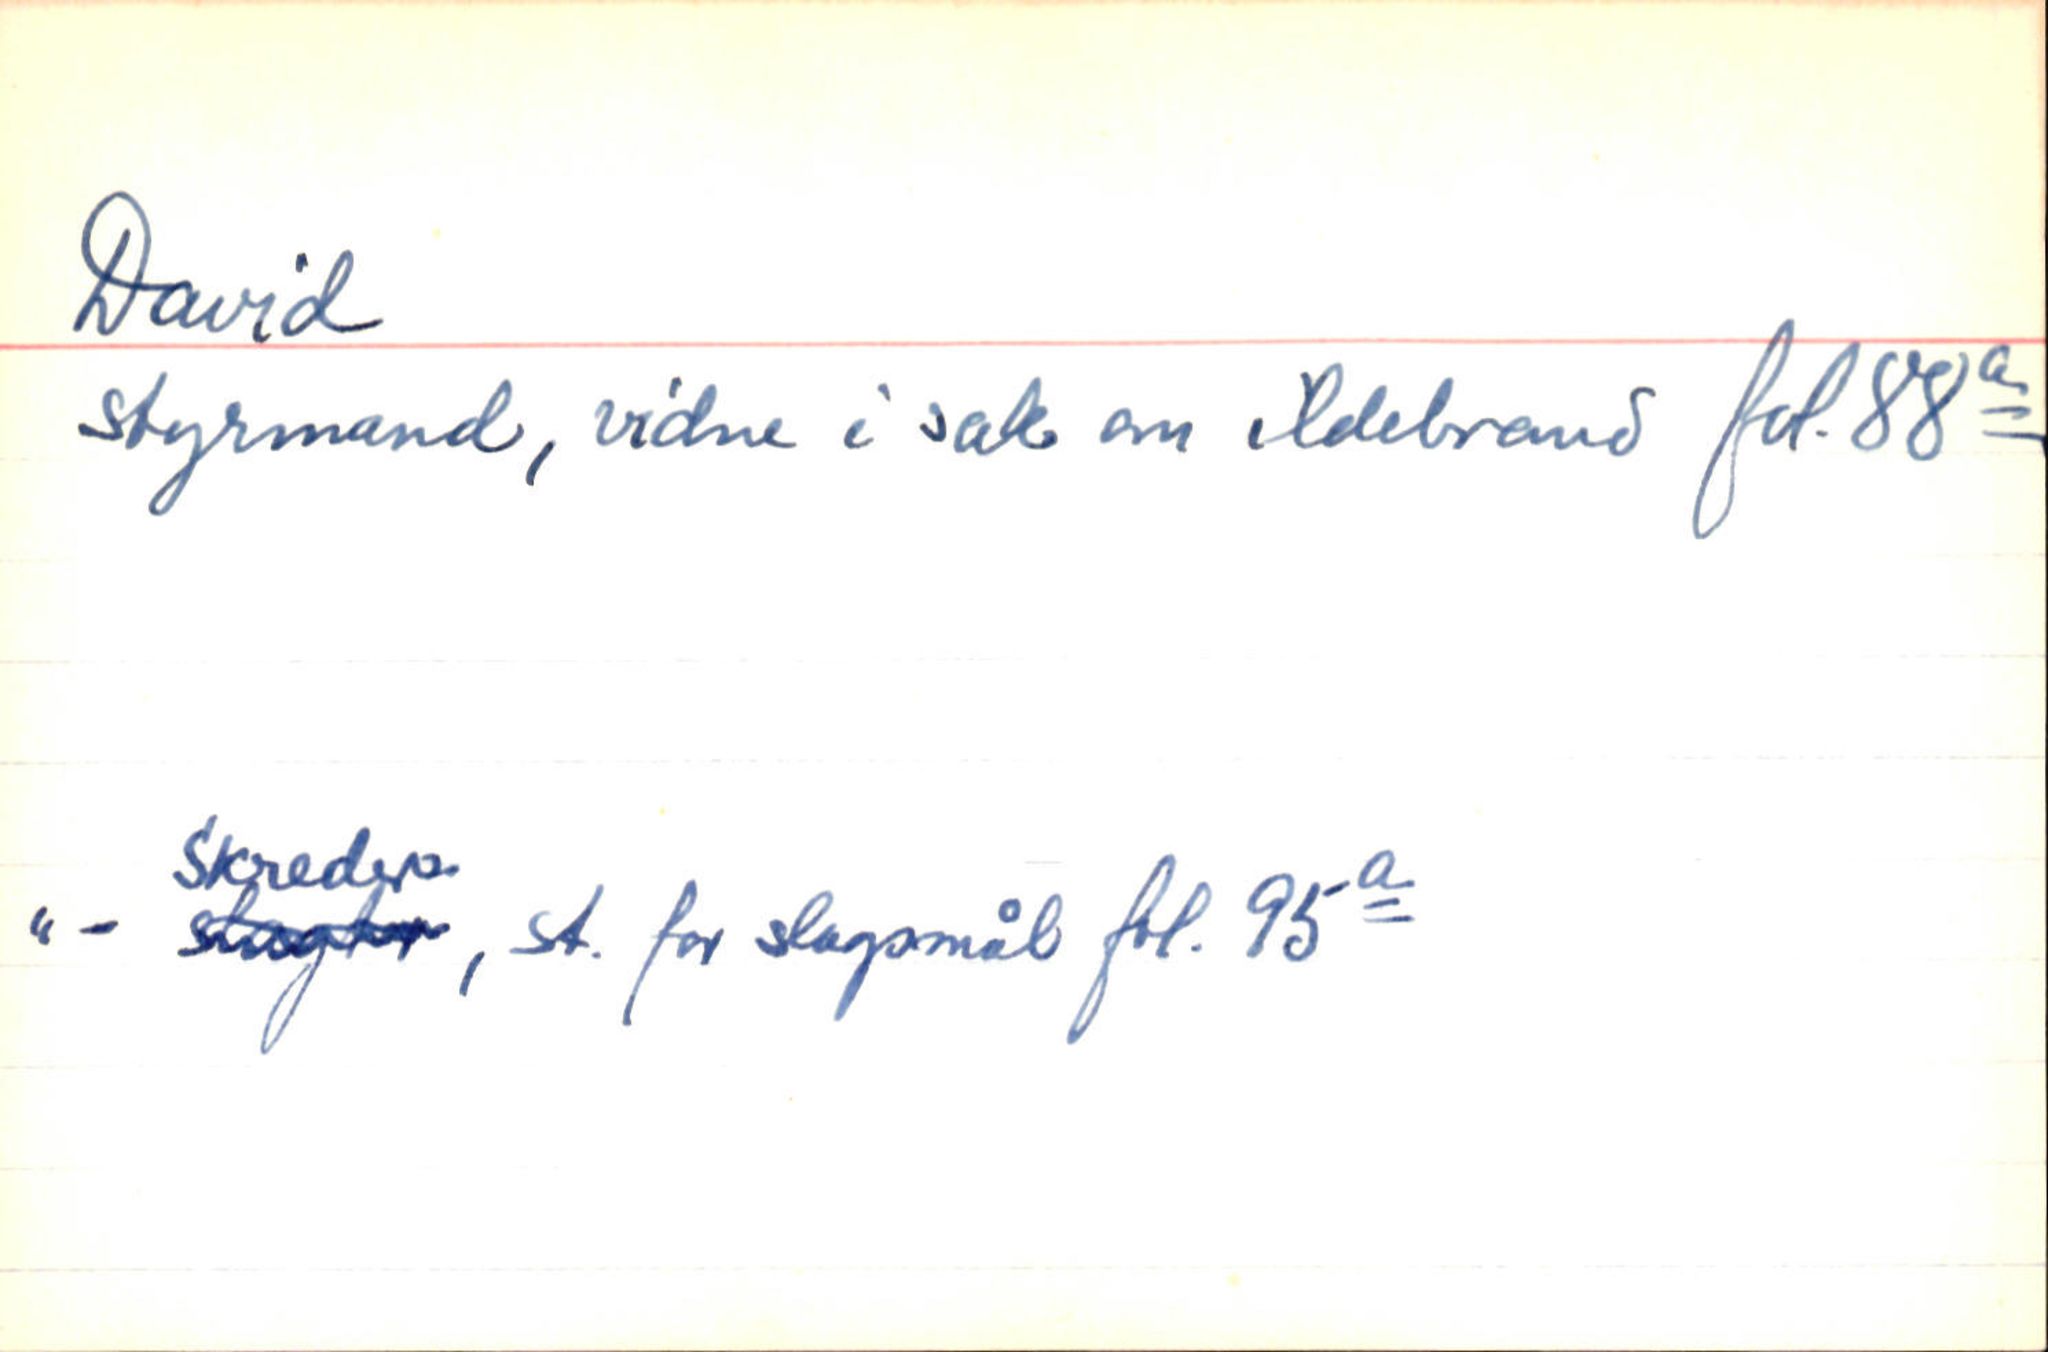 David
styrmand, vidne i sak om ildebrand fol. 88a
Skreder
"- slagter, st. for slagsmål fol. 95a